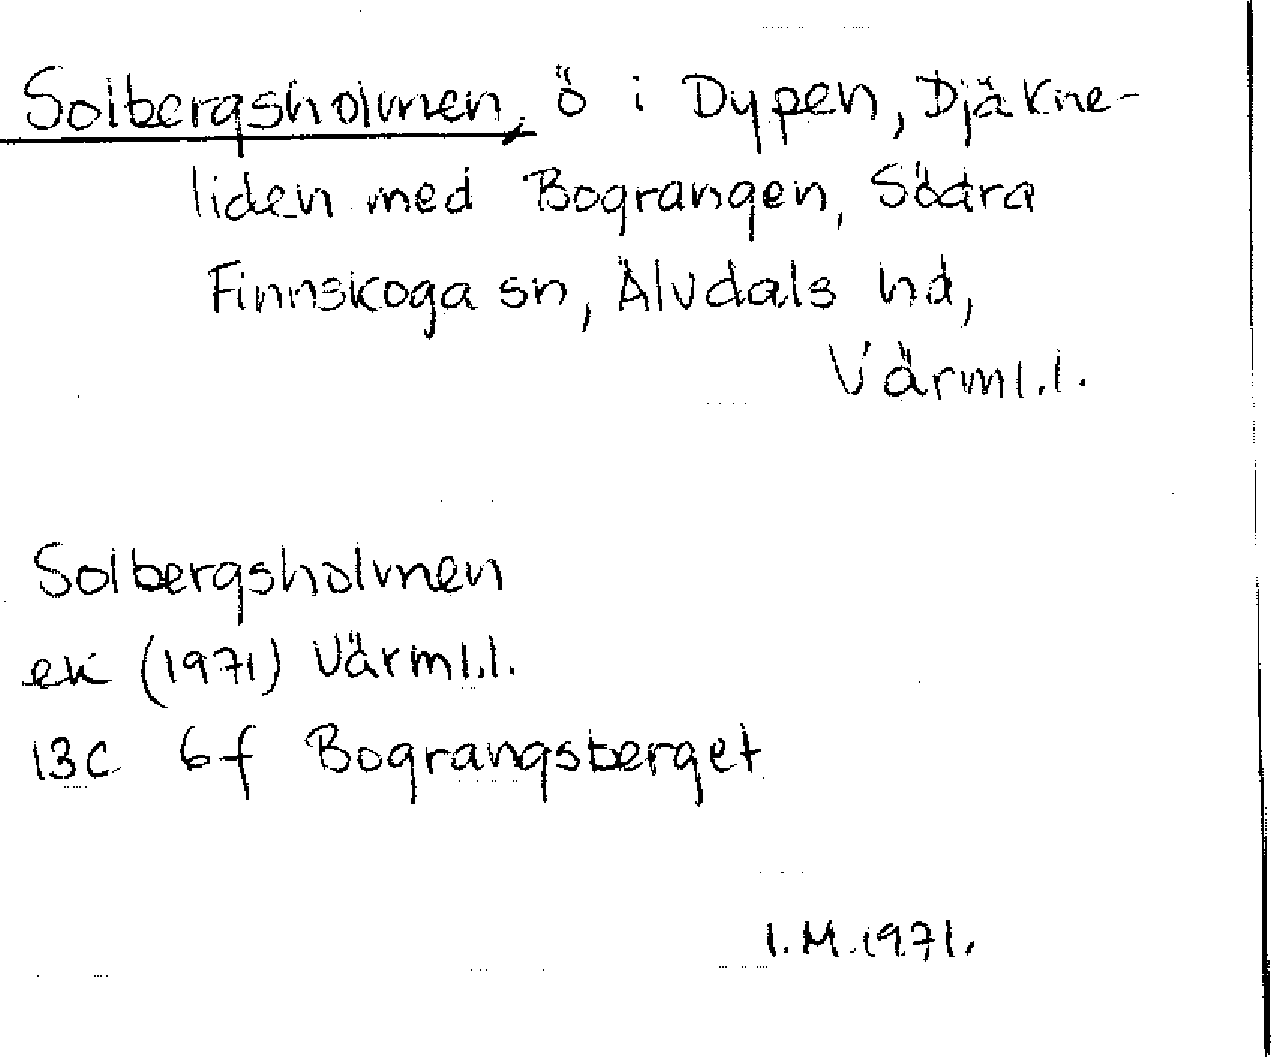 Solbergsholmen, ö i Dypen, Djäkne-
liden med Bograngen, Södra
Finnskoga sn, Älvdals hd,
Värml.l.
Solbergsholmen
ek (1971) Värml.l.
13C 6f Bograngsberget
I.M.1971.